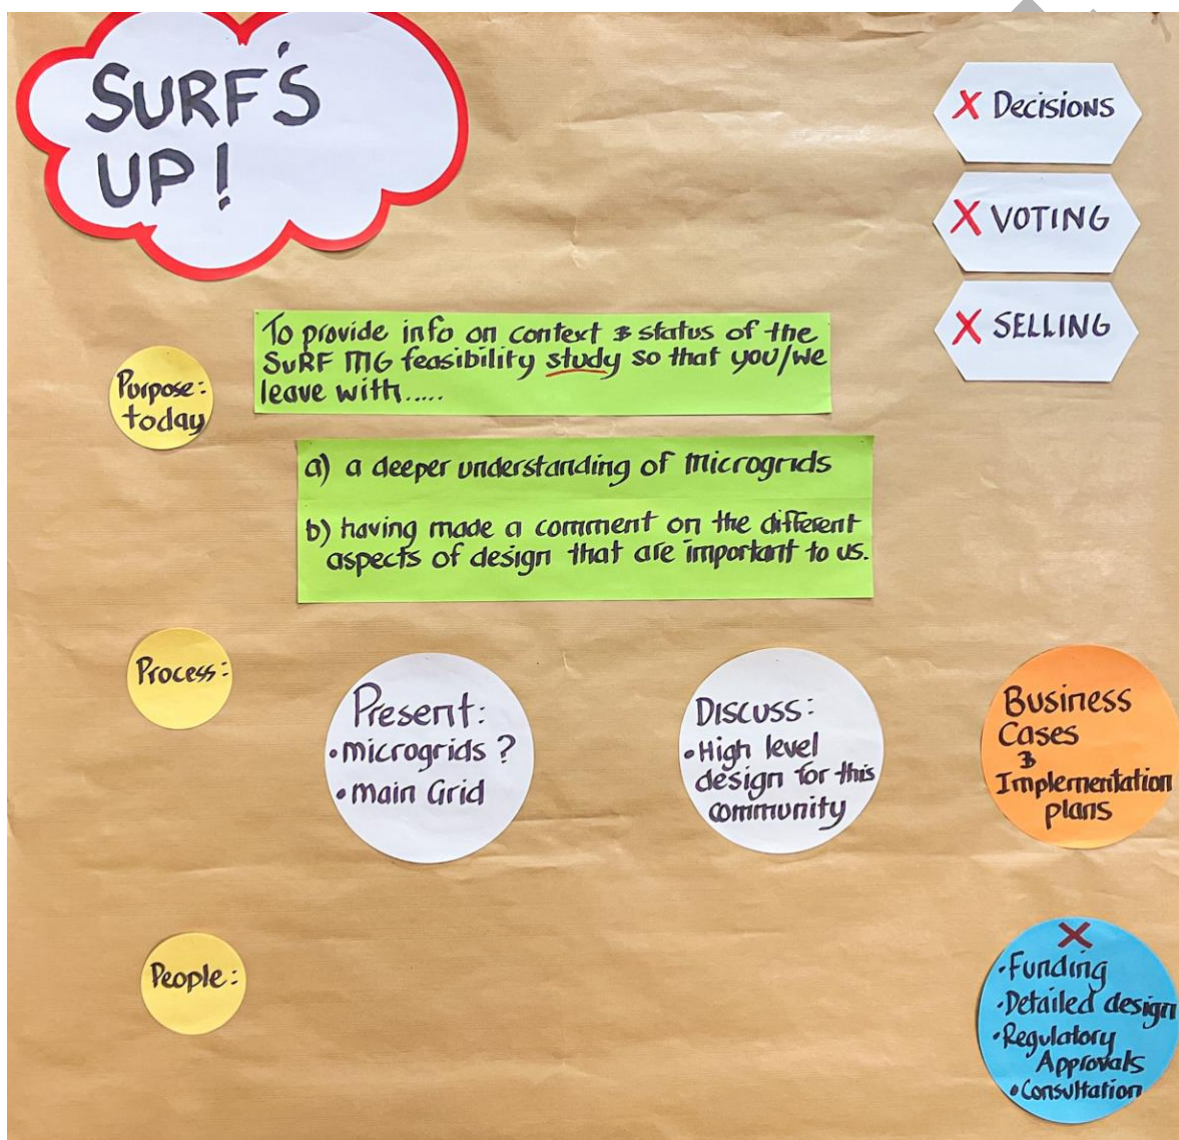 SURF'S
UP!
X Decisions
X VOTING
X SELLING
Purpose:
today
To provide info on context & status of the
SuRF MG feasibility study so that you/we
leave with.....
a) a deeper understanding of Microgrids
b) having made a comment on the different
aspects of design that are important to us.
Process:
Present:
•microgrids ?
•main Grid
DISCUSS:
•High level
design for this
community
Business
Cases
&
Implementation
plans
People:
X
•Funding
•Detailed design
•Regulatory
Approvals
•Consultation